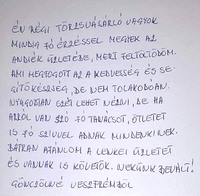 ÉN RÉGI TÖRZSVÁSÁRLÓ VAGYOK
MINDIG JÓ ÉRZÉSSEL MEGYEK AZ
ANDIÉK ÜZLETÉBE, MERT FELTÖLTŐDÖM.
AMI MEGFOGOTT AZ A KEDVESSÉG ÉS SE-
GÍTŐKÉSZSÉG, DE NEM TOLAKODÓAN.
NYUGODTAN SZÉT LEHET NÉZNI, DE HA
ARRÓL VAN SZÓ JÓ TANÁCSOT, ÖTLETET
IS JÓ SZÍVVEL ADNAK MINDENKINEK.
BÁTRAN AJÁNLOM A LENKEI ÜZLETET
ÉS VANNAK IS KÖVETŐK. NEKÜNK BEVÁLT!
GÖNCZÖLNÉ VESZPRÉMBŐL